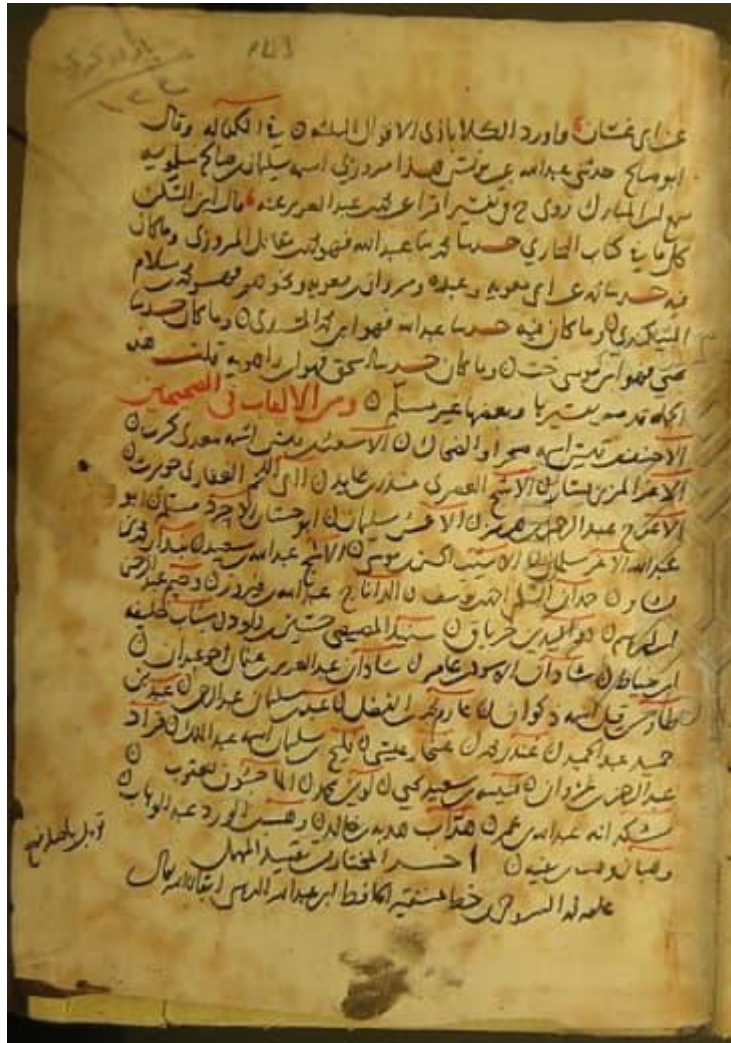 عن ابى غسان وأورد الكلاباذى الاقوال الثلثه فى الكل وقال
ابو صالح حدثنى عبدالله عن يونس هذا مروزى اسمه سليمن بن صالح سلمويه
سمع ابن المبارك روى خ فى تفسير اقرأ عن محمد بن عبد العزيز عنه قال ابن السكن
كل ما فى كتاب البخارى حدثنا محمد ثنا عبدالله فهو محمد بن مقاتل المروزى وماكان
فيه حدثنا محمد عن ابى معويه وعبده ومروان بن معويه ونحوهم فهو محمد بن سلام
البيكندى وماكان فيه حدثنا عبدالله فهو ابن محمد المسندى وماكان حدثنا
يحيى فهو ابن موسى خت وماكان حدثنا اسحق فهو ابن راهويه قلت هذه
وبعضها غير مسلّم ومن الالقاب فى الصحيحين
الاحنف بن قيس اسمه صخر او الضحاك الاشعث بن قيس اسمه معدى كرب
الاغر المزنى بن يسار الاشج العصرى منذر بن عايد ابى اللحم الغفارى حويرث
الاعرج عبد الرحمن بن هرمز الافطس سليمان ابو حسان الاجرد مسلم ابو
عبدالله الاغر سلمان الاشيب الحسن بن موسى الاشج عبدالله بن سعيد بندار محمد بن
بشار حمدان السلمى احمد بن يوسف الداناج عبدالله بن فيروز دحيم عبد الرحمن
ابن ابراهيم ذو اليدين خرباق سنيد المصيصى حسين بن داود شباب خليفه
ابن خياط شاذان الاسود بن عامر شاذان عبد العزيز بن عثمان اخو عبدان
طاوس قيل اسمه ذكوان عارم محمد بن الفضل عبدة بن سليمان عبد الرحمن عبد بن
حميد عبد الحميد غندر محمد فليح بن سليمان اسمه عبد الملك قراد
عبد الرحمن بن غزوان قتيبه بن سعيد يحيى لوين محمد الماجشون يعقوب
مشكدانه عبدالله بن عمر هداب هدبه بن خالد وهيب بن الورد عبد الوهاب
وهبان وهب بن بقيه اخر المختار من تقييد المهمل
علقه من خط منتقيه الحافظ ابى عبدالله الذهبى ابقاه الله تعالى
قوبل باصله فصح